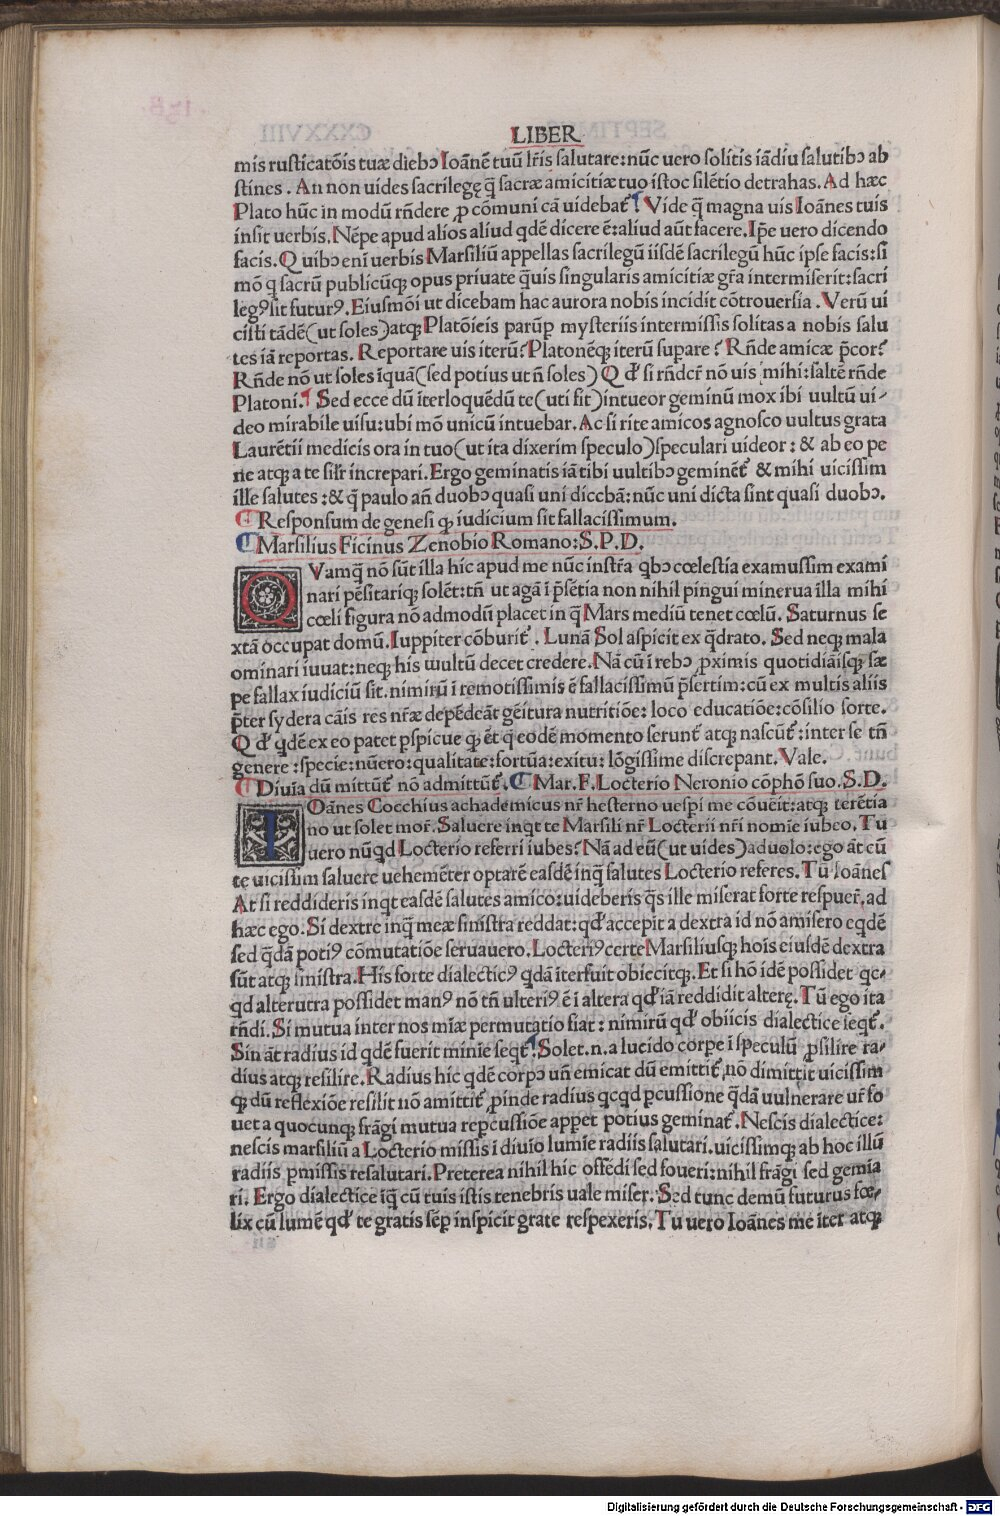 LIBER
mis rusticatõis tuæ diebꝫ Ioãnē tuū lr̄is salutare: nūc uero solitis iãdiu salutibꝫ ab
stines. An non uides sacrilegę q̃ sacræ amicitiæ tuo istoc silẽtio detrahas. Ad hæc
Plato hūc in modū rñdere ꝓ cõmuni cã uidebat᷑. Vide q̃ magna uis Ioãnes tuis
insit uerbis. Nẽpe apud alios aliud qdẽ dicere ẽ: aliud aūt facere. Ip̃e uero dicendo
facis. Quibꝫ eni uerbis Marsiliū appellas sacrilegū iisdẽ sacrilegū hūc ipse facis: si
mõ q sacrū publicūqꝫ opus priuate q̃uis singularis amicitiæ gr̃a intermiserit: sacri
legꝰ sit futurꝰ. Eiusmõi ut dicebam hac aurora nobis incidit cõtrouersia. Verū ui
cisti tãdẽ (ut soles) atqꝫ Platõicis parūp mysteriis intermissis solitas a nobis salu
tes iã reportas. Reportare uis iterū? Platonẽqꝫ iterū supare? Rñde amicæ p̃cor?
Rñde nõ ut soles iquã (sed potius ut ñ soles) Qđ si rñdcr̃ nõ uis mihi: saltẽ rñde
Platoni. Sed ecce dū iterloquẽdū te (uti sit) intueor geminū mox ibi uultū ui-
deo mirabile uisu: ubi mõ unicū intuebar. Ac si rite amicos agnosco uultus grata
Laurẽtii medicis ora in tuo (ut ita dixerim speculo) speculari uideor: & ab eo pe
ne atqꝫ a te silr̃ increpari. Ergo geminatis iã tibi uultibꝫ geminẽt᷑ & mihi uicissim
ille salutes: & q̃ paulo añ duobꝫ quasi uni dicebã: nūc uni dicta sint quasi duobꝫ.
Responsum de genesi qꝫ iudicium sit fallacissimum.
Marsilius Ficinus Zenobio Romano: S. P. D.
QVamq̃ nõ sūt illa hic apud me nūc instr̃a qbꝫ cœlestia examussim exami
nari pẽsitariqꝫ solẽt: tñ ut agã i p̃sẽtia non nihil pingui minerua illa mihi
cœli figura nõ admodū placet in q̃ Mars mediū tenet cœlū. Saturnus se
xtã occupat domū. Iuppiter cõburit᷑. Lunã Sol aspicit ex q̃drato. Sed neqꝫ mala
ominari iuuat: neqꝫ his uultū decet credere. Nã cū i rebꝫ ꝓximis quotidiãisqꝫ sæ
pe fallax iudiciū sit. nimirū i remotissimis ẽ fallacissimū p̃sertim: cū ex multis aliis
p̃ter sydera cãis res nr̃æ depẽdeãt gẽitura nutritiõe: loco educatiõe: cõsilio sorte.
Qđ qdẽ ex eo patet pspicue qꝫ ẽt q eodẽ momento serunt᷑ atqꝫ nascūt᷑: inter se tñ
genere: specie: nūero: qualitate: fortūa: exitu: lõgissime discrepant. Vale.
Diuia dū mittūt᷑ nõ admittūt᷑. Mar. F. Locterio Neronio cõphõ suo. S. D.
IOãnes Cocchius achademicus nr̃ hesterno uesp̃i me cõuẽit: atqꝫ terẽtia
no ut solet mor̃. Saluere inqt te Marsili nr̃ Locterii nr̃i nomie iubeo. Tu
uero nūqd Locterio referri iubes? Nã ad eū (ut uides) aduolo: ego ãt cū
te uicissim saluere uehemẽter optarẽ easdẽ inq̃ salutes Locterio referes. Tū Ioãnes
At si reddideris inqt easdẽ salutes amico: uideberis q̃s ille miserat forte respuer̃. ad
hæc ego. Si dextre inq̃ meæ sinistra reddat: qđ accepit a dextra id nõ amisero eqdẽ
sed q̃dã potiꝰ cõmutatiõe seruauero. Locteriꝰ certe Marsiliusqꝫ hois eiusdẽ dextra
sūt atqꝫ sinistra. His forte dialecticꝰ qdã iterfuit obiecitqꝫ. Et si hõ idẽ possidet qc-
qd alterutra possidet manꝰ nõ tñ ulteriꝰ ẽ i altera qđ iã reddidit alterę. Tū ego ita
rñdi. Si mutua inter nos miæ permutatio fiat: nimirū qđ obiicis dialectice seqt᷑.
Sin ãt radius id qdẽ fuerit minie seqt᷑. Solet .n. a lucido corpe i speculū ꝓsilire ra-
dius atqꝫ resilire. Radius hic qdẽ corpꝫ uñ emicat dū emittit᷑, nõ dimittit uicissim
qꝫ dū reflexiõe resilit nõ amittit᷑ ꝓinde radius qcqd pcussione q̃dã uulnerare ur̃ fo
uet a quocunqꝫ frãgi mutua repcussiõe appet potius geminat᷑. Nescis dialectice:
nescis marsiliū a Locterio missis i diuio lumie radiis salutari. uicissimqꝫ ab hoc illū
radiis ꝓmissis resalutari. Preterea nihil hic offẽdi sed foueri: nihil frãgi sed gemia
ri. Ergo dialectice iq̃ cū tuis istis tenebris uale miser. Sed tunc demū futurus fœ-
lix cū lumẽ qđ te gratis sẽp inspicit grate respexeris. Tu uero Ioãnes me iter atqꝫ
Digitalisierung gefördert durch die Deutsche Forschungsgemeinschaft - DFG